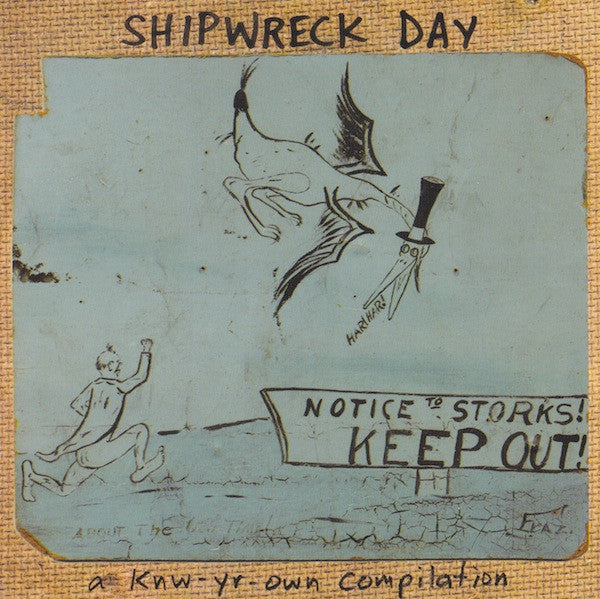 SHIPWRECK DAY
HAR! HAR!
NOTICE TO STORKS!
KEEP OUT!
ABOUT THE
a Knw-yr-own Compilation